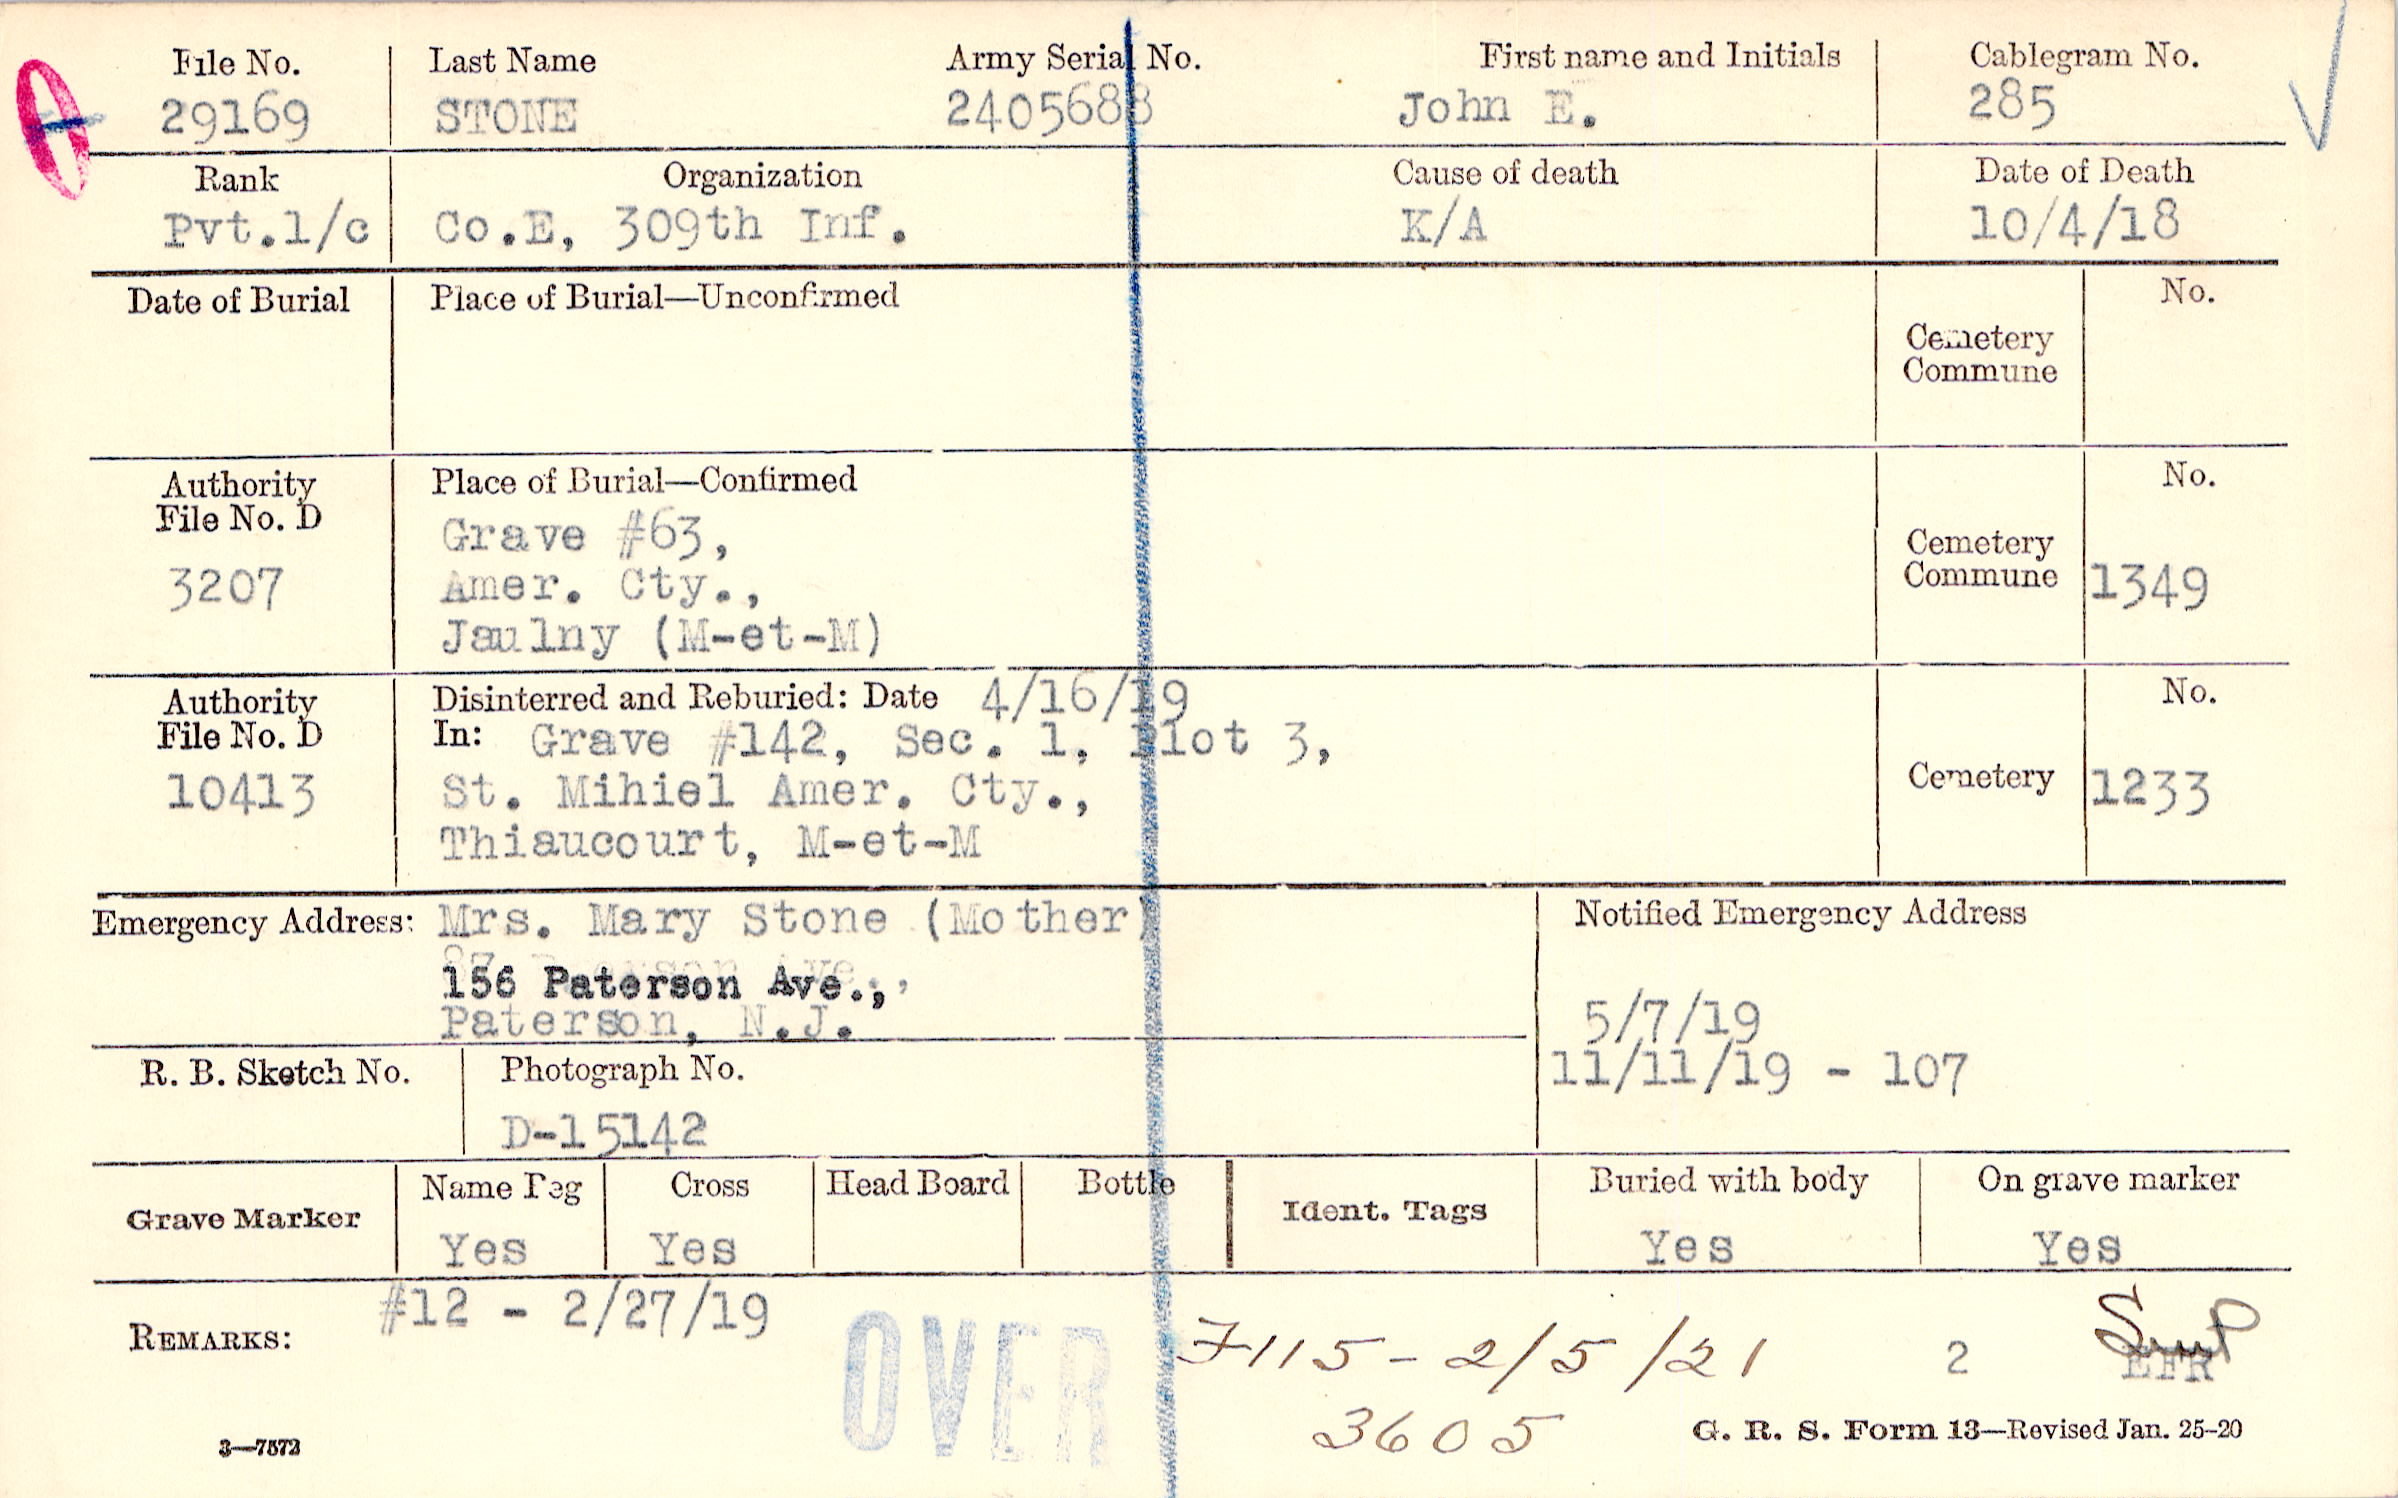 File No. Last Name Army Serial No. First name and Initials Cablegram No.
29169 STONE 2405688 John E. 285
Rank Organization Cause of death Date of Death
Pvt.1/c Co.E, 309th Inf. K/A 10/4/18
Date of Burial Place of Burial—Unconfirmed No.
Cemetery
Commune
Authority Place of Burial—Confirmed No.
File No. D Grave #63, Cemetery
3207 Amer. Cty., Commune 1349
Jaulny (M-et-M)
Authority Disinterred and Reburied: Date 4/16/19 No.
File No. D In: Grave #142, Sec. 1, Plot 3,
10413 St. Mihiel Amer. Cty., Cemetery 1233
Thiaucourt, M-et-M
Emergency Address: Mrs. Mary Stone (Mother) Notified Emergency Address
156 Paterson Ave.,
Paterson, N.J. 5/7/19
R. B. Sketch No. Photograph No. 11/11/19 - 107
D-15142
Grave Marker Name Peg Cross Head Board Bottle Ident. Tags Buried with body On grave marker
Yes Yes Yes Yes
REMARKS: #12 - 2/27/19
OVER 7115-2/5/21 2 EFR
3605
3—7572 G. R. S. Form 13—Revised Jan. 25-20